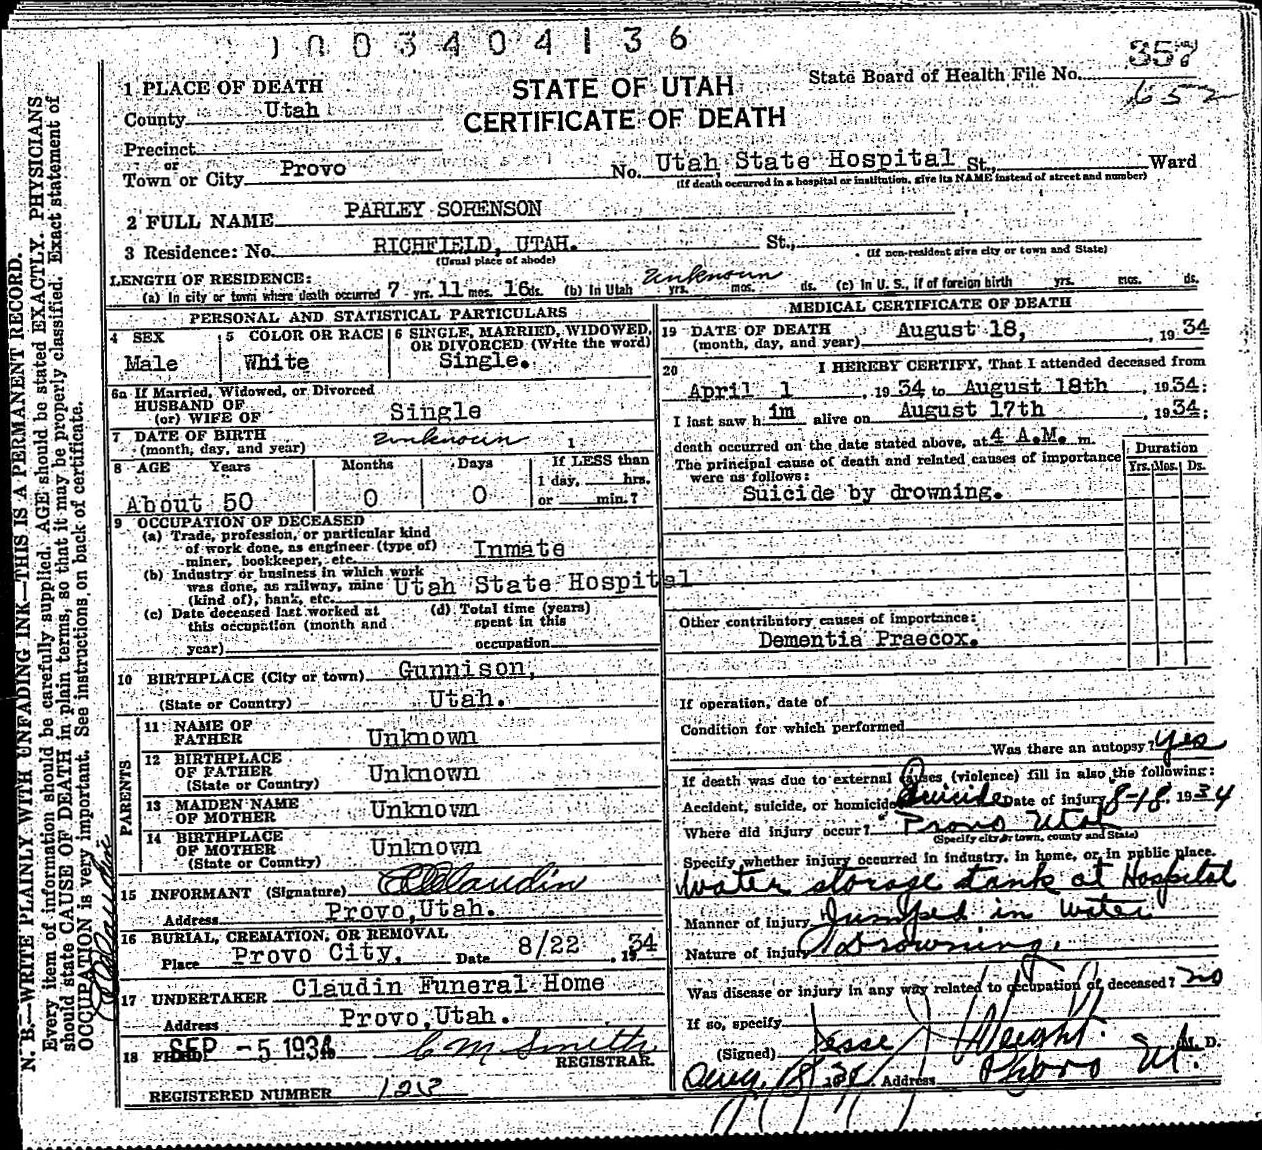 1003404136
State Board of Health File No. 357
652
STATE OF UTAH
CERTIFICATE OF DEATH
1 PLACE OF DEATH
County Utah
Precinct
or
Town or City Provo No. Utah State Hospital St., Ward
(If death occurred in a hospital or institution, give its NAME instead of street and number)
2 FULL NAME PARLEY SORENSON
3 Residence: No. RICHFIELD, UTAH. St.,
(Usual place of abode) (If non-resident give city or town and State)
LENGTH OF RESIDENCE:
(a) In city or town where death occurred 7 yrs. 11 mos. 16 ds. (b) In Utah unknown yrs. mos. ds. (c) In U. S., if of foreign birth yrs. mos. ds.
PERSONAL AND STATISTICAL PARTICULARS
4 SEX Male
5 COLOR OR RACE White
6 SINGLE, MARRIED, WIDOWED, OR DIVORCED (Write the word) Single.
6a If Married, Widowed, or Divorced
HUSBAND OF
(or) WIFE OF Single
7 DATE OF BIRTH
(month, day, and year) unknown 1
8 AGE Years Months Days If LESS than
1 day, hrs.
About 50 0 0 or min.?
9 OCCUPATION OF DECEASED
(a) Trade, profession, or particular kind
of work done, as engineer (type of)
miner, bookkeeper, etc. Inmate
(b) Industry or business in which work
was done, as railway, mine
(kind of), bank, etc. Utah State Hospital
(c) Date deceased last worked at
this occupation (month and
year)
(d) Total time (years)
spent in this
occupation
10 BIRTHPLACE (City or town) Gunnison,
(State or Country) Utah.
PARENTS
11 NAME OF
FATHER Unknown
12 BIRTHPLACE
OF FATHER Unknown
(State or Country)
13 MAIDEN NAME
OF MOTHER Unknown
14 BIRTHPLACE
OF MOTHER Unknown
(State or Country)
15 INFORMANT (Signature) Claudin
Address Provo, Utah.
16 BURIAL, CREMATION, OR REMOVAL
Place Provo City, Date 8/22, 1934
17 UNDERTAKER Claudin Funeral Home
Address Provo, Utah.
18 FILED SEP -5 1934 C M Smith
REGISTRAR.
REGISTERED NUMBER 123
MEDICAL CERTIFICATE OF DEATH
19 DATE OF DEATH
(month, day, and year) August 18, , 1934
20 I HEREBY CERTIFY, That I attended deceased from
April 1 , 1934 to August 18th , 1934;
I last saw him alive on August 17th , 1934;
death occurred on the date stated above, at 4 A.M. m.
The principal cause of death and related causes of importance
were as follows:
Duration
Yrs. Mos. Ds.
Suicide by drowning.
Other contributory causes of importance:
Dementia Praecox.
If operation, date of
Condition for which performed
Was there an autopsy? yes
If death was due to external causes (violence) fill in also the following:
Accident, suicide, or homicide Suicide Date of injury 8-18, 1934
Where did injury occur? Provo Utah
(Specify city or town, county and State)
Specify whether injury occurred in industry, in home, or in public place.
Water storage tank at Hospital
Manner of injury Jumped in water
Nature of injury Drowning.
Was disease or injury in any way related to occupation of deceased? no
If so, specify
(Signed) Jesse J Weight M. D.
Aug. 18 1934 Address Provo Ut.
N. B.—WRITE PLAINLY WITH UNFADING INK—THIS IS A PERMANENT RECORD.
Every item of information should be carefully supplied. AGE should be stated EXACTLY. PHYSICIANS
should state CAUSE OF DEATH in plain terms, so that it may be properly classified. Exact statement of
OCCUPATION is very important. See instructions on back of certificate.